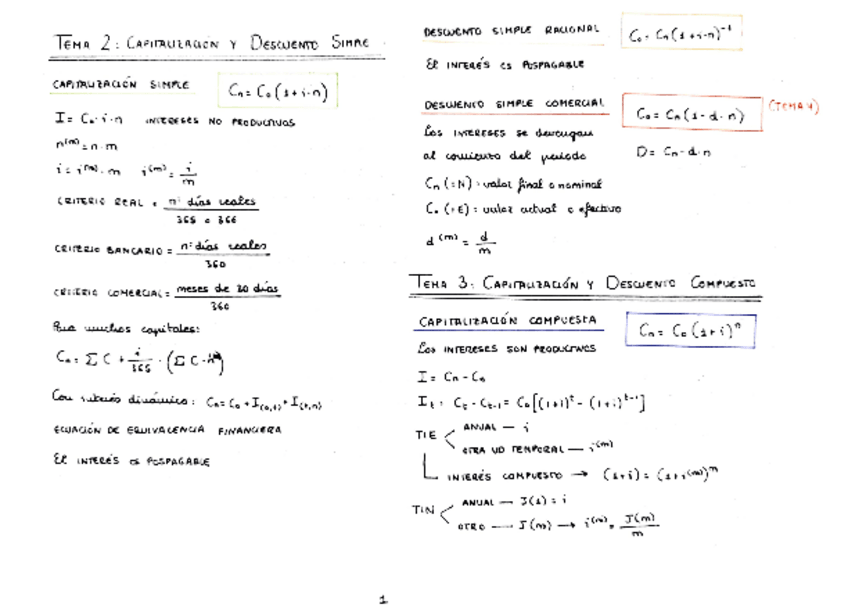 TEMA 2: CAPITALIZACIÓN Y DESCUENTO SIMPLE
CAPITALIZACIÓN SIMPLE Cn = C0 (1+i·n)
I = C0·i·n INTERESES NO PRODUCTIVOS
n^(m) = n·m
i = i^(m)·m i^(m) = i/m
CRITERIO REAL = nº días reales / 365 o 366
CRITERIO BANCARIO = nº días reales / 360
CRITERIO COMERCIAL = meses de 30 días / 360
Para muchos capitales:
Cn = Σ C + i/365 · (Σ C·
Con interés dinámico: Cn = C0 + I(0,t) + I(t,n)
ECUACIÓN DE EQUIVALENCIA FINANCIERA
El INTERÉS ES POSPAGABLE
DESCUENTO SIMPLE RACIONAL C0 = Cn (1+i·n)^-1
El INTERÉS ES POSPAGABLE
DESCUENTO SIMPLE COMERCIAL C0 = Cn (1-d·n) (TEMA 4)
Los INTERESES se devengan
al comienzo del periodo D = Cn·d·n
Cn (=N) : valor final o nominal
C0 (=E) : valor actual o efectivo
d^(m) = d/m
TEMA 3: CAPITALIZACIÓN Y DESCUENTO COMPUESTO
CAPITALIZACIÓN COMPUESTA Cn = C0 (1+i)^n
Los INTERESES SON PRODUCTIVOS
I = Cn - C0
It = Ct - Ct-1 = C0 [(1+i)^t - (1+i)^t-1]
TIE < ANUAL — i
OTRA UD TEMPORAL — i^(m)
INTERÉS COMPUESTO → (1+i) = (1+i^(m))^m
TIN < ANUAL — J(1) = i
OTRO — J(m) → i^(m) = J(m)/m
1